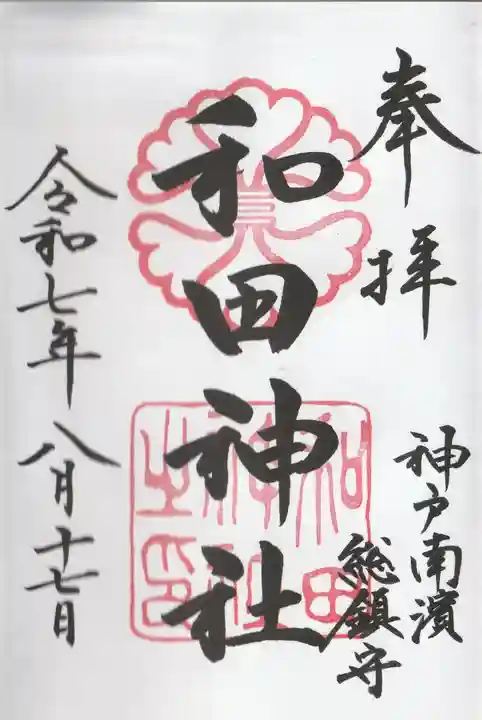 奉拝
神戸南濱
総鎮守
和田神社
和田
神社
之印
令和七年八月十七日